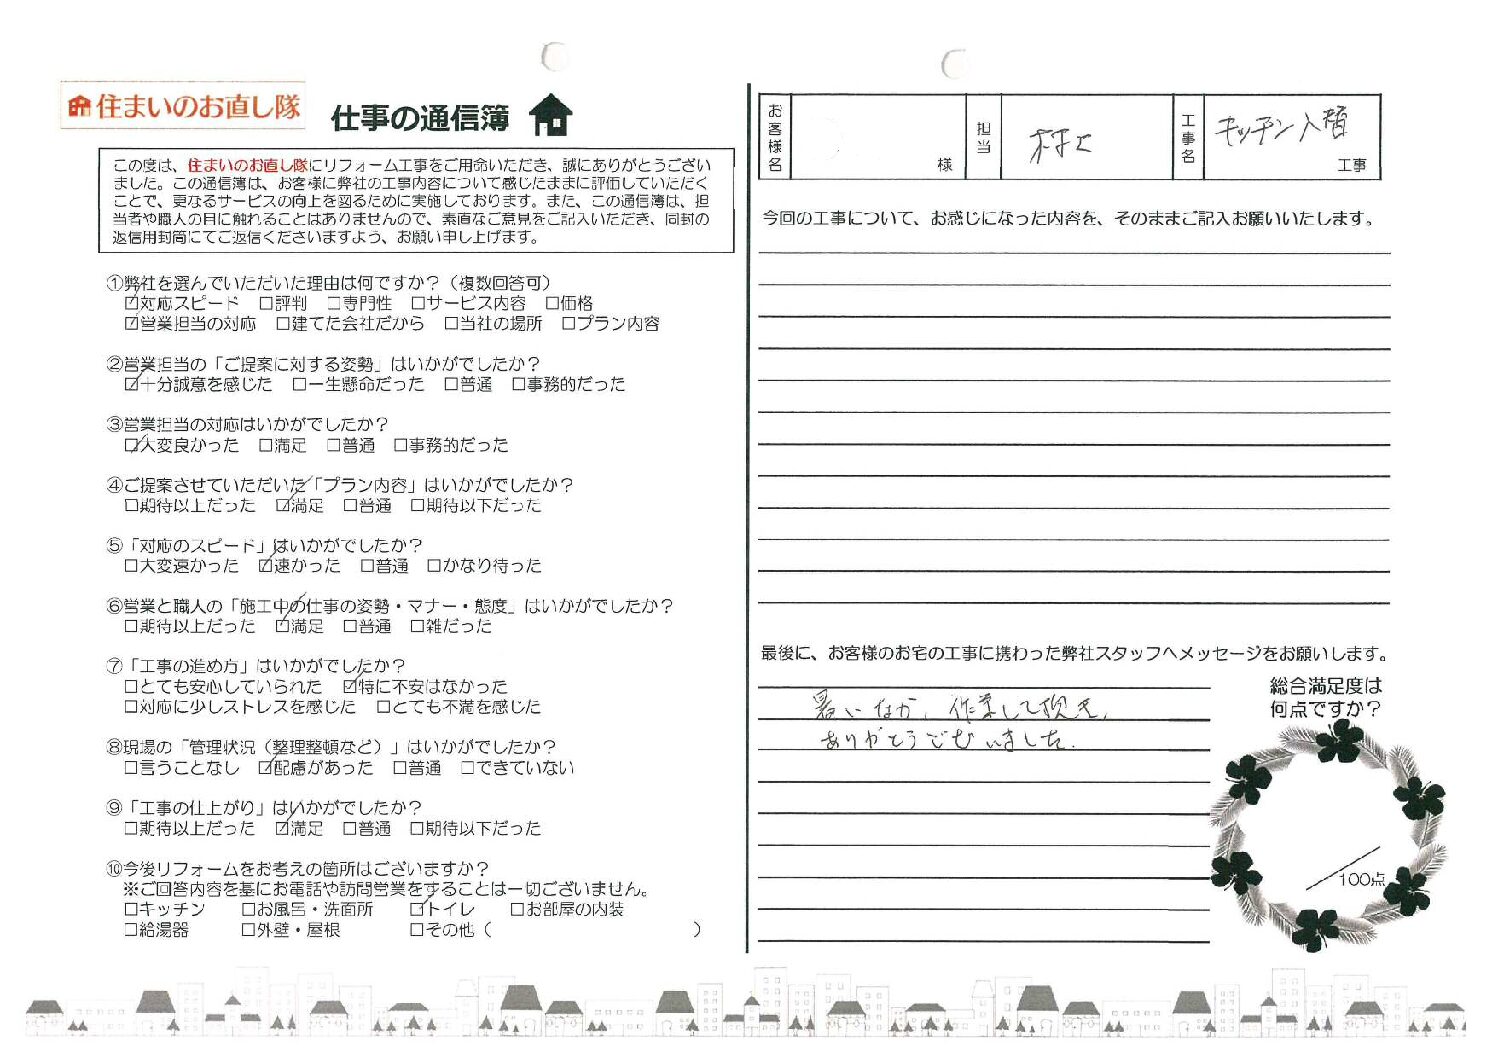 住まいのお直し隊
仕事の通信簿
この度は、住まいのお直し隊にリフォーム工事をご用命いただき、誠にありがとうござい
ました。この通信簿は、お客様に弊社の工事内容について感じたままに評価していただく
ことで、更なるサービスの向上を図るために実施しております。また、この通信簿は、担
当者や職人の目に触れることはありませんので、素直なご意見をご記入いただき、同封の
返信用封筒にてご返信くださいますよう、お願い申し上げます。
①弊社を選んでいただいた理由は何ですか？（複数回答可）
☑対応スピード □評判 □専門性 □サービス内容 □価格
☑営業担当の対応 □建てた会社だから □当社の場所 □プラン内容
②営業担当の「ご提案に対する姿勢」はいかがでしたか？
☑十分誠意を感じた □一生懸命だった □普通 □事務的だった
③営業担当の対応はいかがでしたか？
☑大変良かった □満足 □普通 □事務的だった
④ご提案させていただいた「プラン内容」はいかがでしたか？
□期待以上だった ☑満足 □普通 □期待以下だった
⑤「対応のスピード」はいかがでしたか？
□大変速かった ☑速かった □普通 □かなり待った
⑥営業と職人の「施工中の仕事の姿勢・マナー・態度」はいかがでしたか？
□期待以上だった ☑満足 □普通 □雑だった
⑦「工事の進め方」はいかがでしたか？
□とても安心していられた ☑特に不安はなかった
□対応に少しストレスを感じた □とても不満を感じた
⑧現場の「管理状況（整理整頓など）」はいかがでしたか？
□言うことなし ☑配慮があった □普通 □できていない
⑨「工事の仕上がり」はいかがでしたか？
□期待以上だった ☑満足 □普通 □期待以下だった
⑩今後リフォームをお考えの箇所はございますか？
※ご回答内容を基にお電話や訪問営業をすることは一切ございません。
□キッチン □お風呂・洗面所 ☑トイレ □お部屋の内装
□給湯器 □外壁・屋根 □その他（ ）
お客様名 様 担当 村上 工事名 キッチン入替 工事
今回の工事について、お感じになった内容を、そのままご記入お願いいたします。
最後に、お客様のお宅の工事に携わった弊社スタッフへメッセージをお願いします。
暑いなか、作業して頂き、
ありがとうございました。
総合満足度は
何点ですか？
／100点